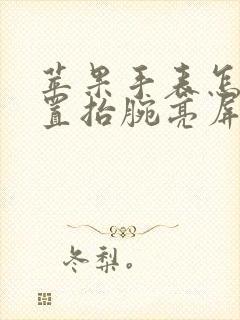 苹果手表怎
置抬腕亮屏
冬梨。